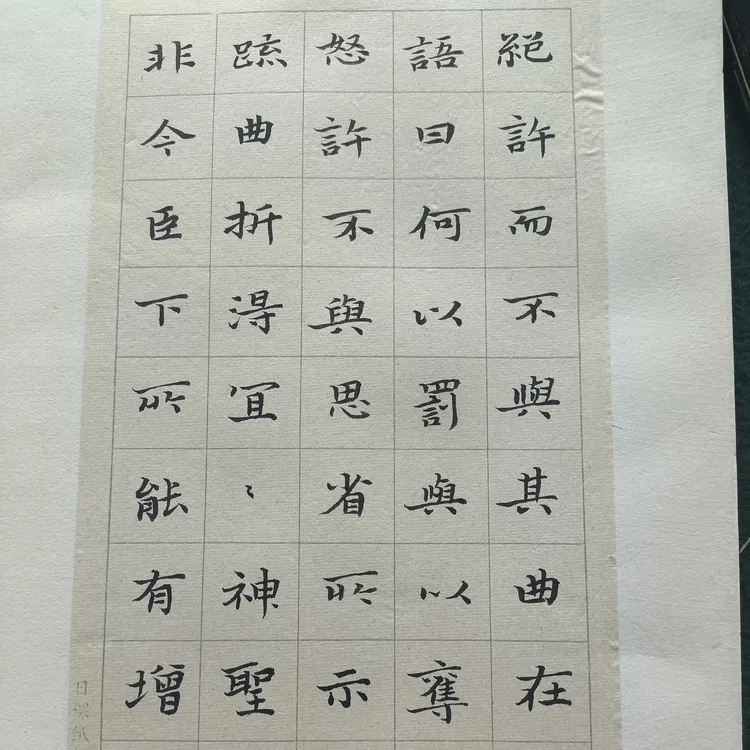 絕許而不與其曲在
語曰何以罰與以奪
怒許不與思省所示
疏曲折得宜〻神聖
非今臣下所能有增
日課紙